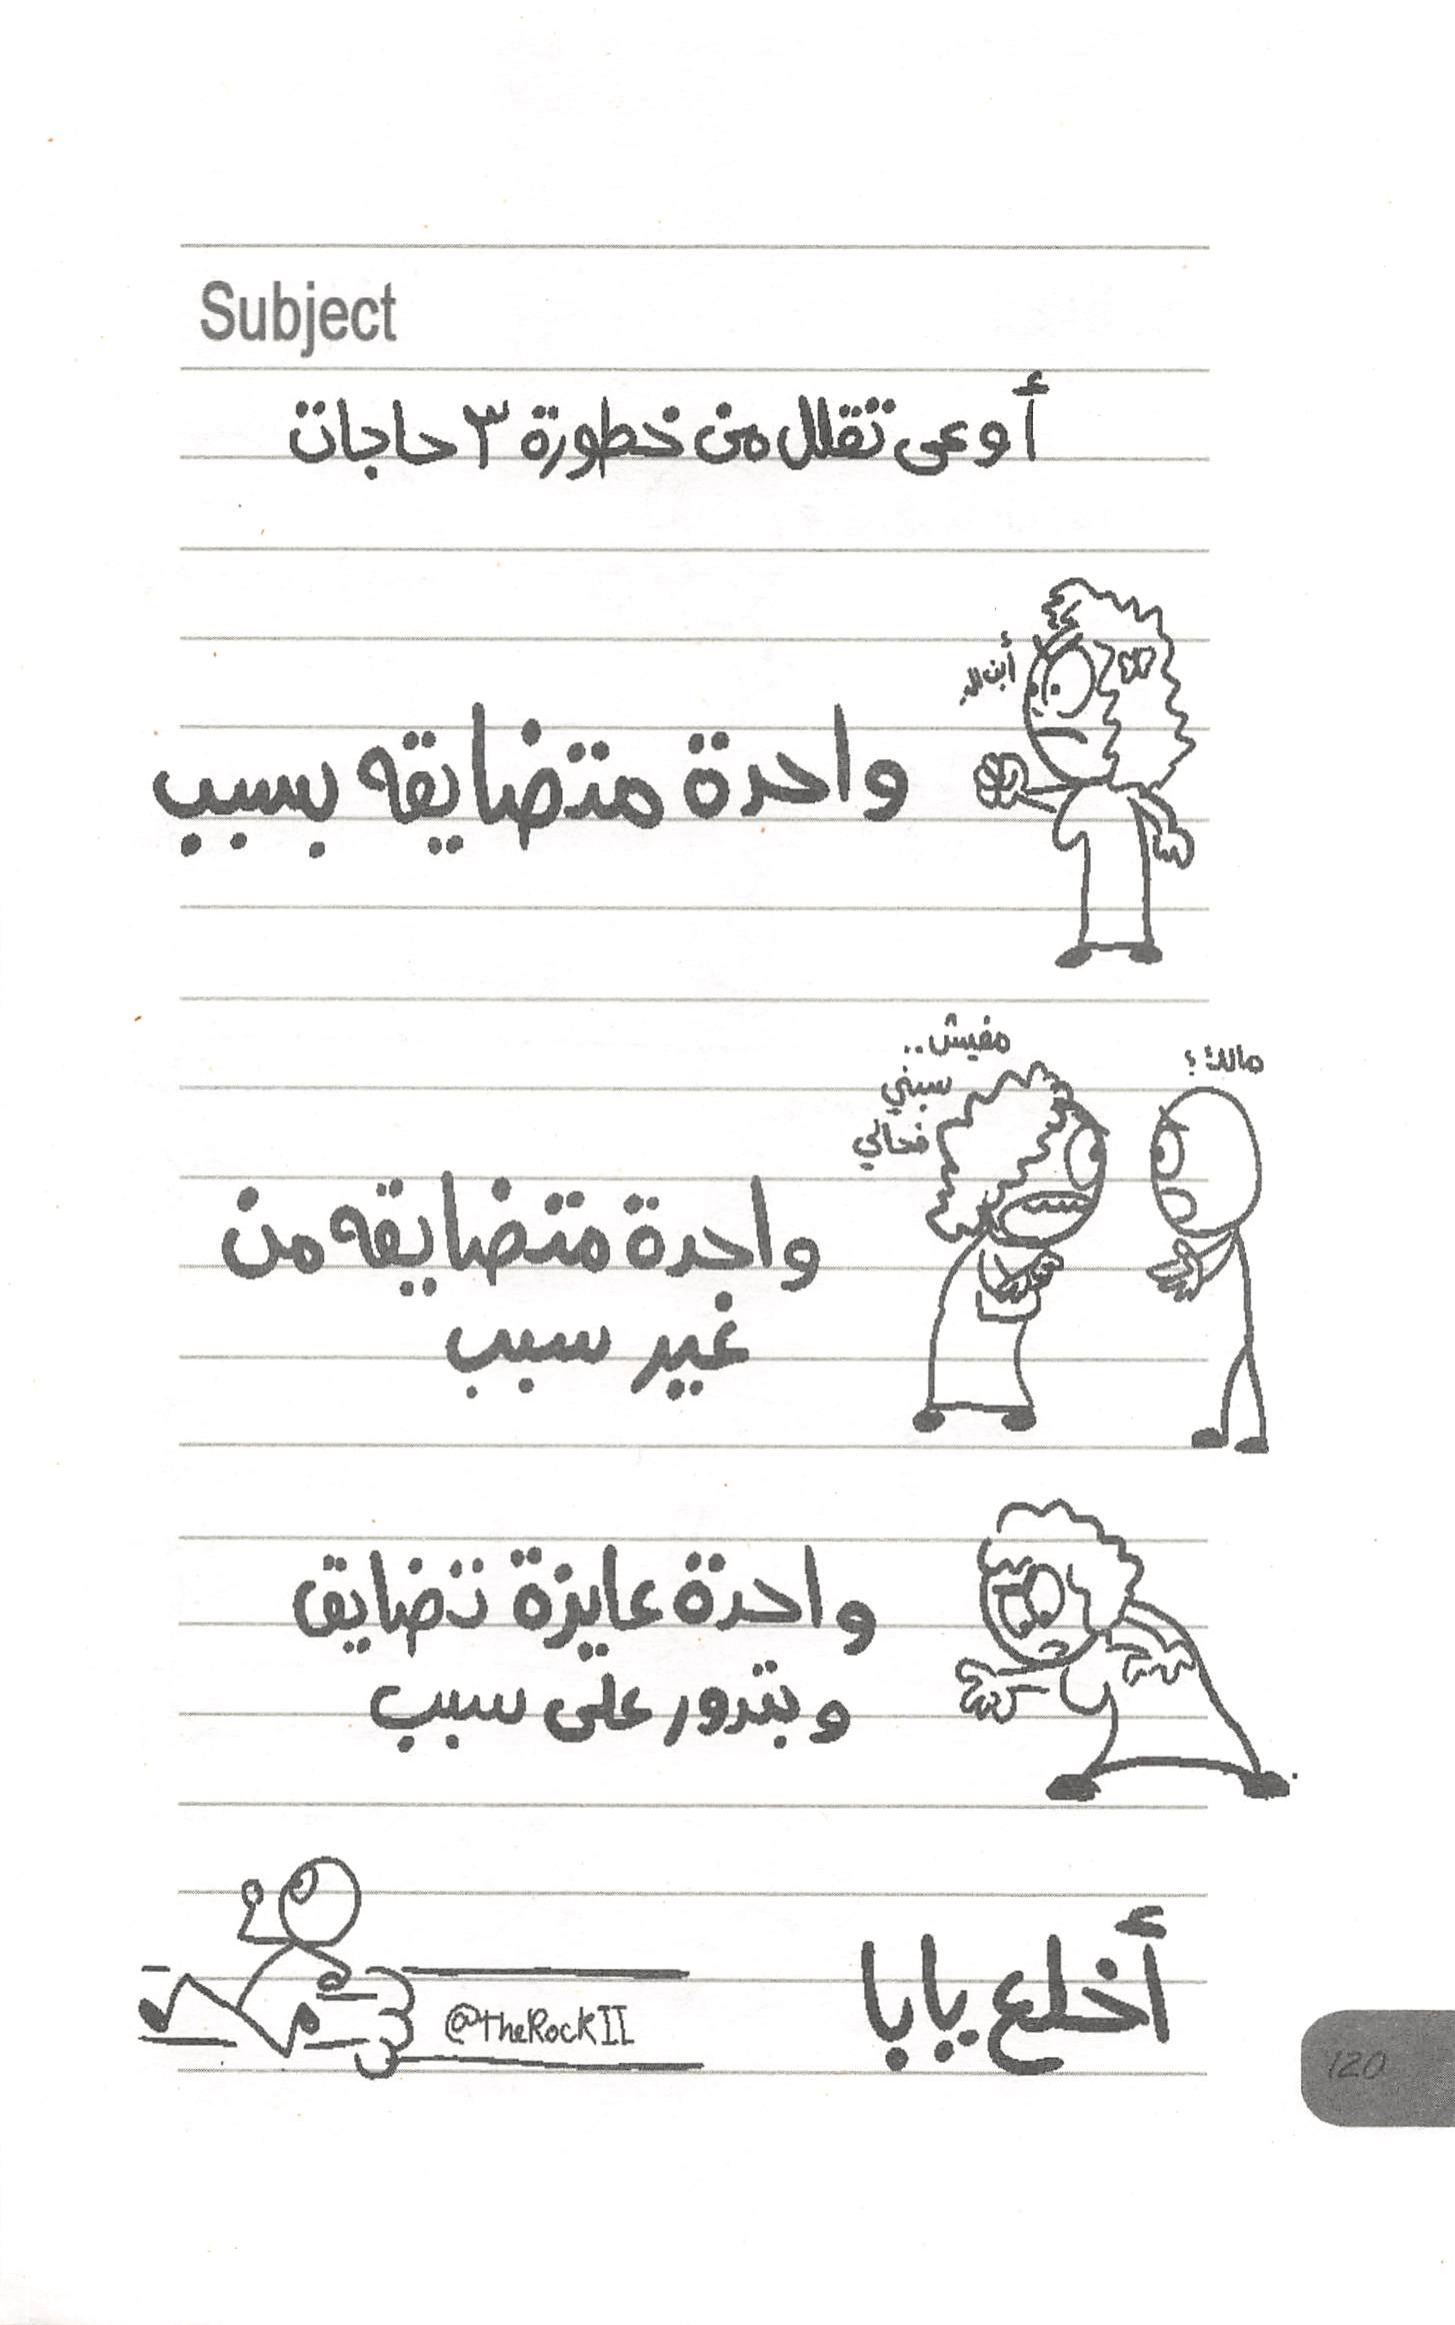 Subject
أوعى تقلل من خطورة ٣ حاجات
أبن الـ
واحدة متضايقه بسبب
مالك؟
مفيش..
سبني
فحالي
واحدة متضايقه من
غير سبب
واحدة عايزة تضايق
وبتدور على سبب
أخلع يابا
@TheRockII
120